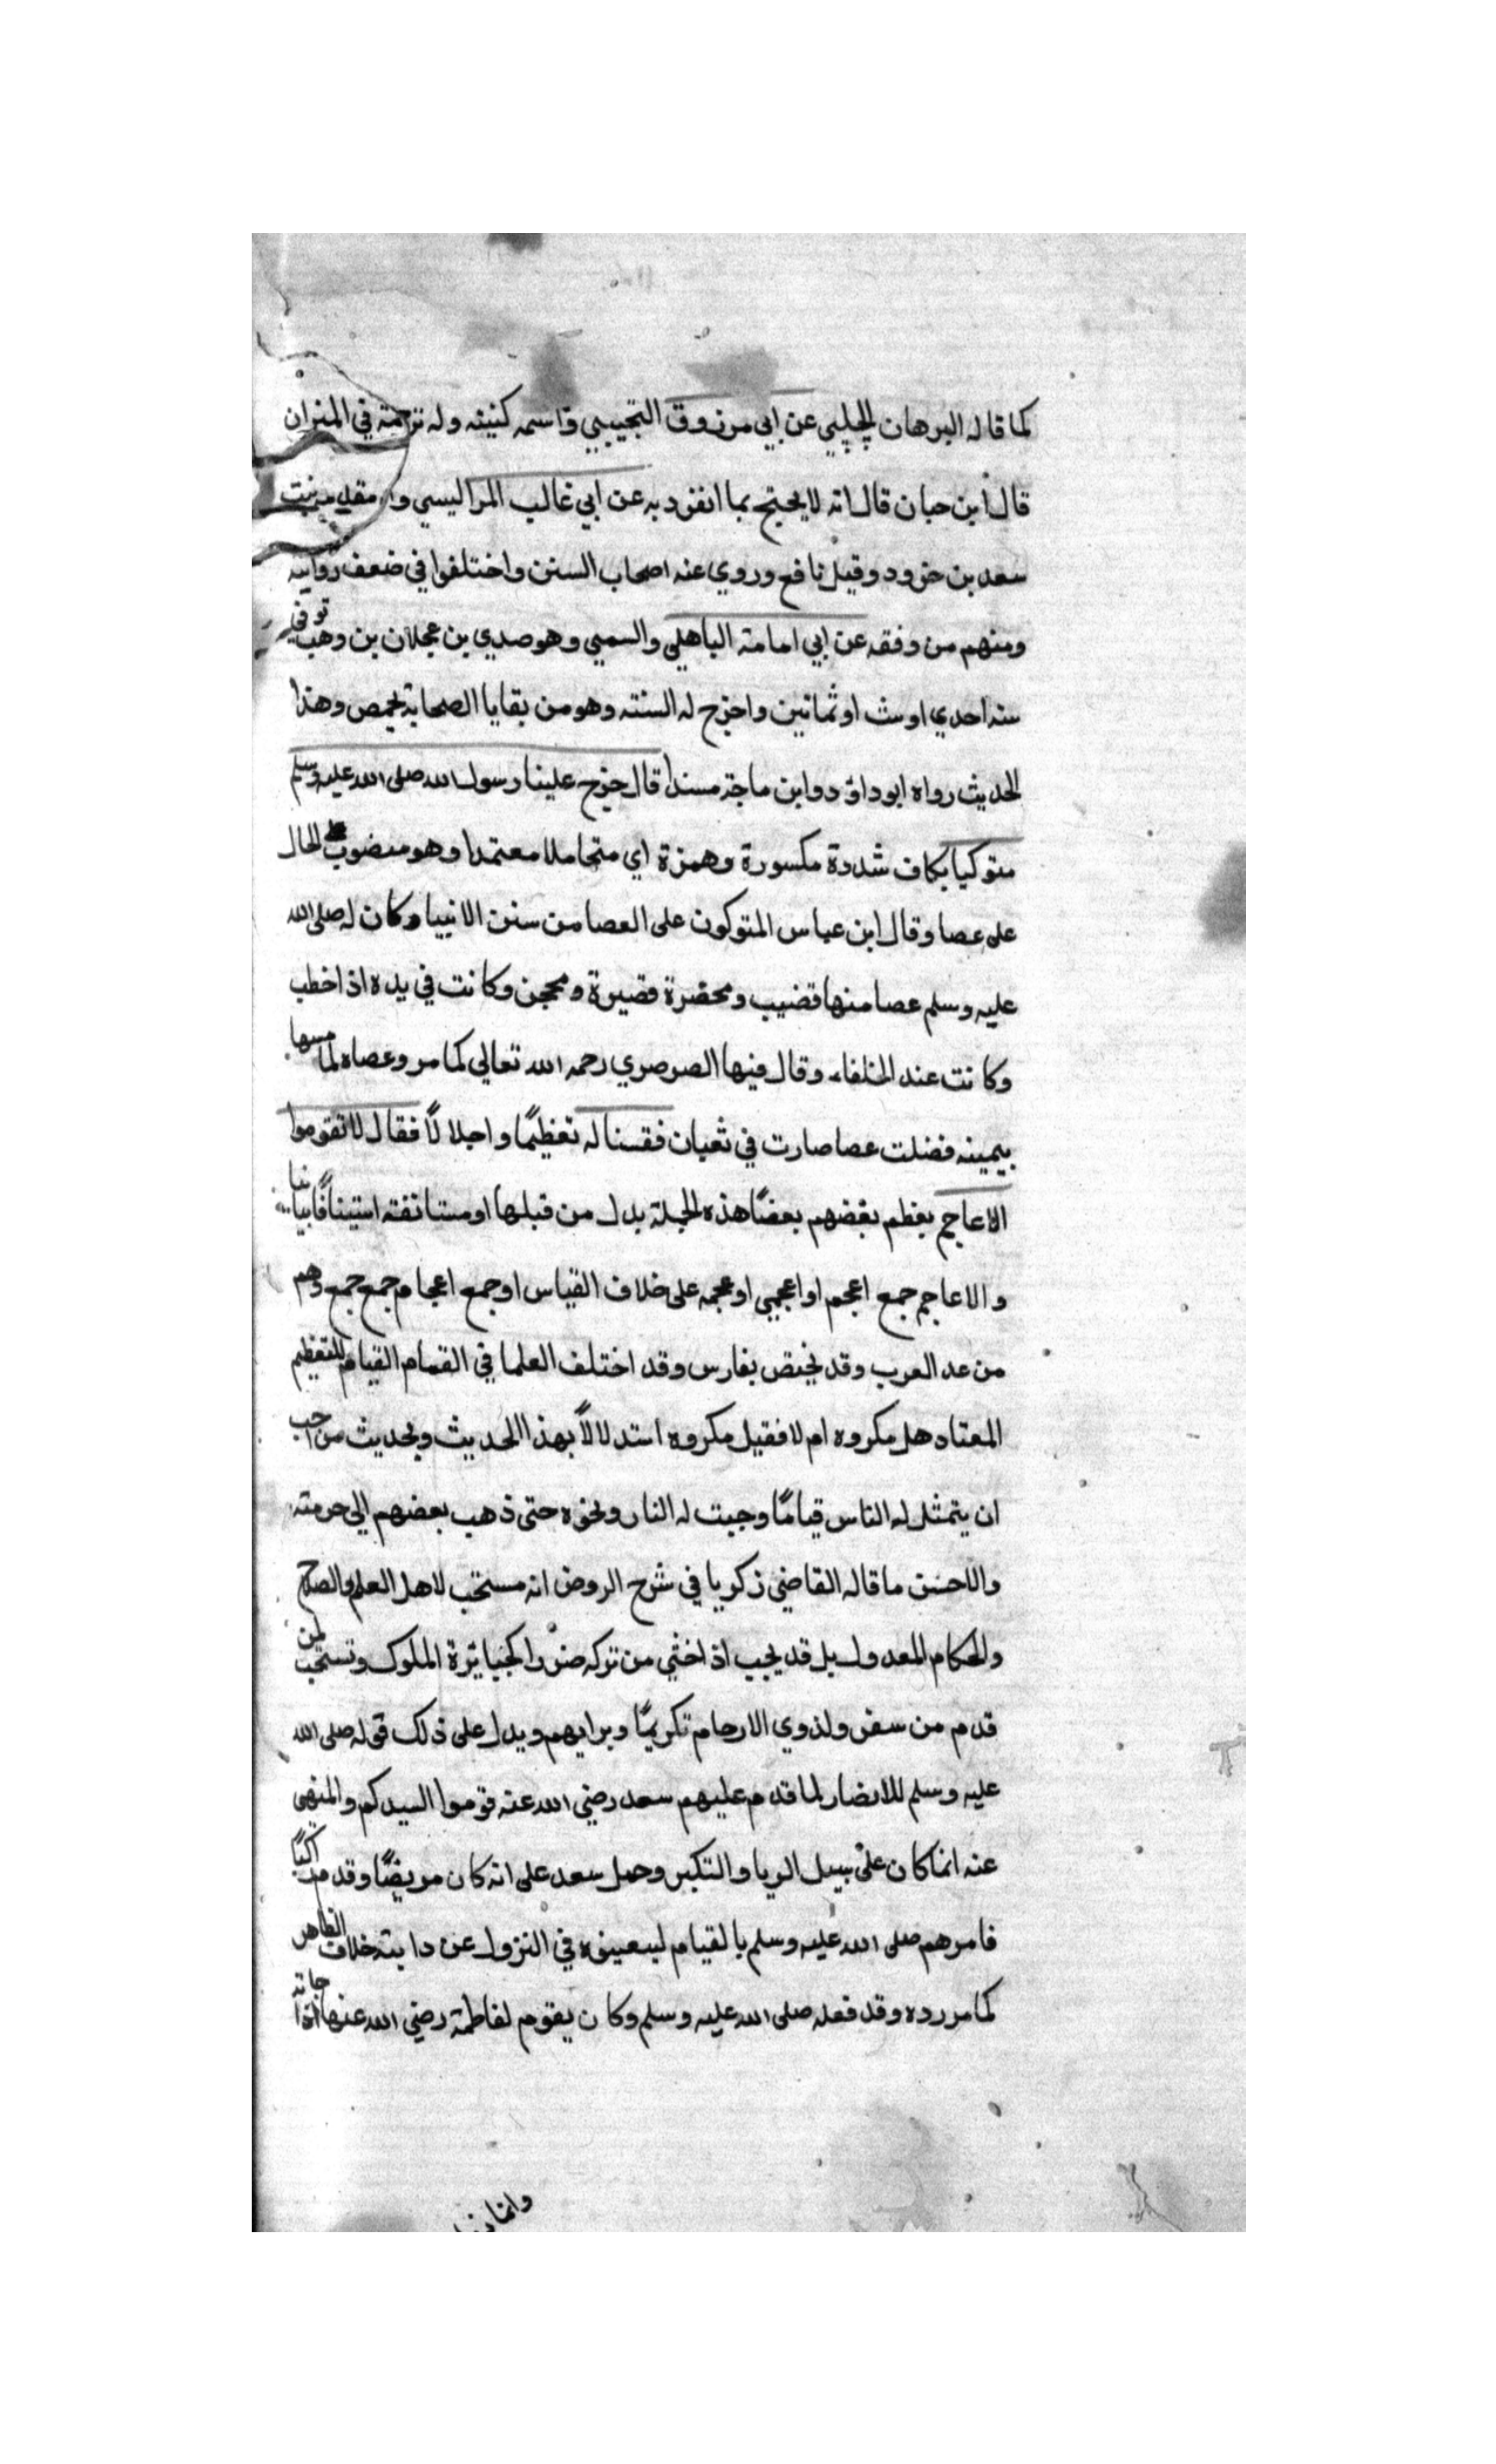 كما قاله البرهان الحلبي عن ابي مرزوق التجيبي واسمه كنيته وله ترجمة في الميزان
قال ابن حبان قال انه لا يحتج بما انفرد به عن ابي غالب المراليسي و
سعد بن حزود وقيل نافع وروي عنه اصحاب السنن واختلفوا في ضعف روايته
ومنهم من وفقه عن ابي امامة الباهلي والسمي وهو صدي بن عجلان بن وهب توفي
سنه احدي اوست اوثمانين واخرج له الستة وهو من بقايا الصحابة بحمص وهذا
الحديث رواه ابو داود وابن ماجة مسندا قال خرج علينا رسول الله صلى الله عليه وسلم
متوكيا بكاف شددة مكسورة وهمزة اي متحاملا معتمدا وهو منصوب على الحال
على عصا وقال ابن عباس المتوكون على العصا من سنن الانبيا وكان له صلى الله
عليه وسلم عصا منها قضيب ومخضرة قصيرة ومحجن وكانت في يده اذا خطب
وكانت عند الخلفاء وقال فيها الصرصري رحمه الله تعالي كما مر وعصاه لما مسها
بيمينه فضلت عصا صارت في ثعبان فقمنا له تعظيمًا واجلالاً فقال لا تقوموا
الاعاجم يعظم بعضهم بعضًا هذه الجملة بدل من قبلها او مستانفة استينافًا بيانيا
والاعاجم جمع اعجم او اعجمي او عجمه على خلاف القياس او جمع اعجام جمع جمع وهم
من عد العرب وقد يختص بفارس وقد اختلف العلما في القمام القيام للتعظيم
المعتاد هل مكروه ام لا فقيل مكروه استدلالاً بهذا الحديث وبحديث من احب
ان يتمثل له الناس قيامًا وجبت له النار ونحوه حتى ذهب بعضهم الي حرمته
والاحسن ما قاله القاضي زكريا في شرح الروض انه مستحب لاهل العلم والصلاح
والحكام المعدول بل قد يجب اذا خشي من تركه ضررا كجبابرة الملوك وتستحب لمن
قدم من سفر ولذوي الارحام تكريمًا وبرا بهم ويدل على ذلك قوله صلى الله
عليه وسلم للانصار لما قدم عليهم سعد رضي الله عنه قوموا السيدكم والمنهى
عنه انما كان على سبيل الريا والتكبر وحمل سعد على انه كان مريضًا وقدم راكبًا
فامرهم صلى الله عليه وسلم بالقيام ليعينوه في النزول عن دابته خلاف الظاهر
كما مر رده وقد فعله صلى الله عليه وسلم وكان يقوم لفاطمة رضي الله عنها اذا جاته